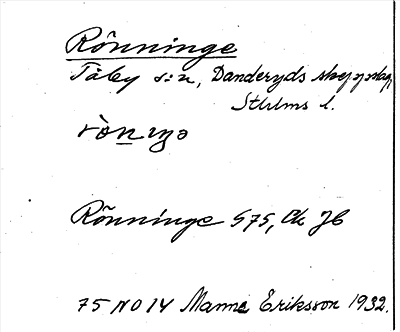 Rönninge
Täby s:n, Danderyds skeppslag,
Sthlms l.
rò̱nŋə
Rönninge 575, Ck JB
75 NO 14 Manne Eriksson 1932.